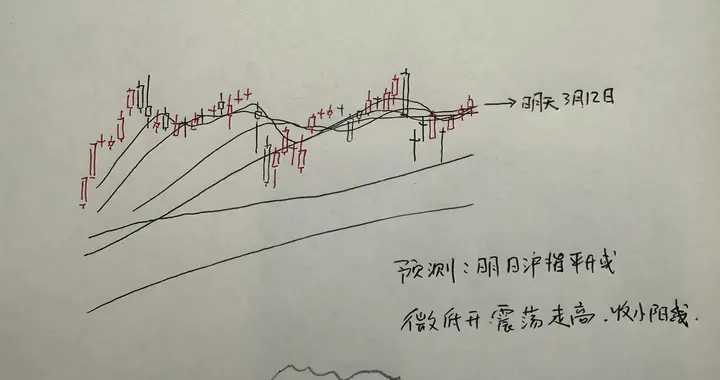 明天3月12日
预测:明日沪指平开或
微低开震荡走高.收小阳线.